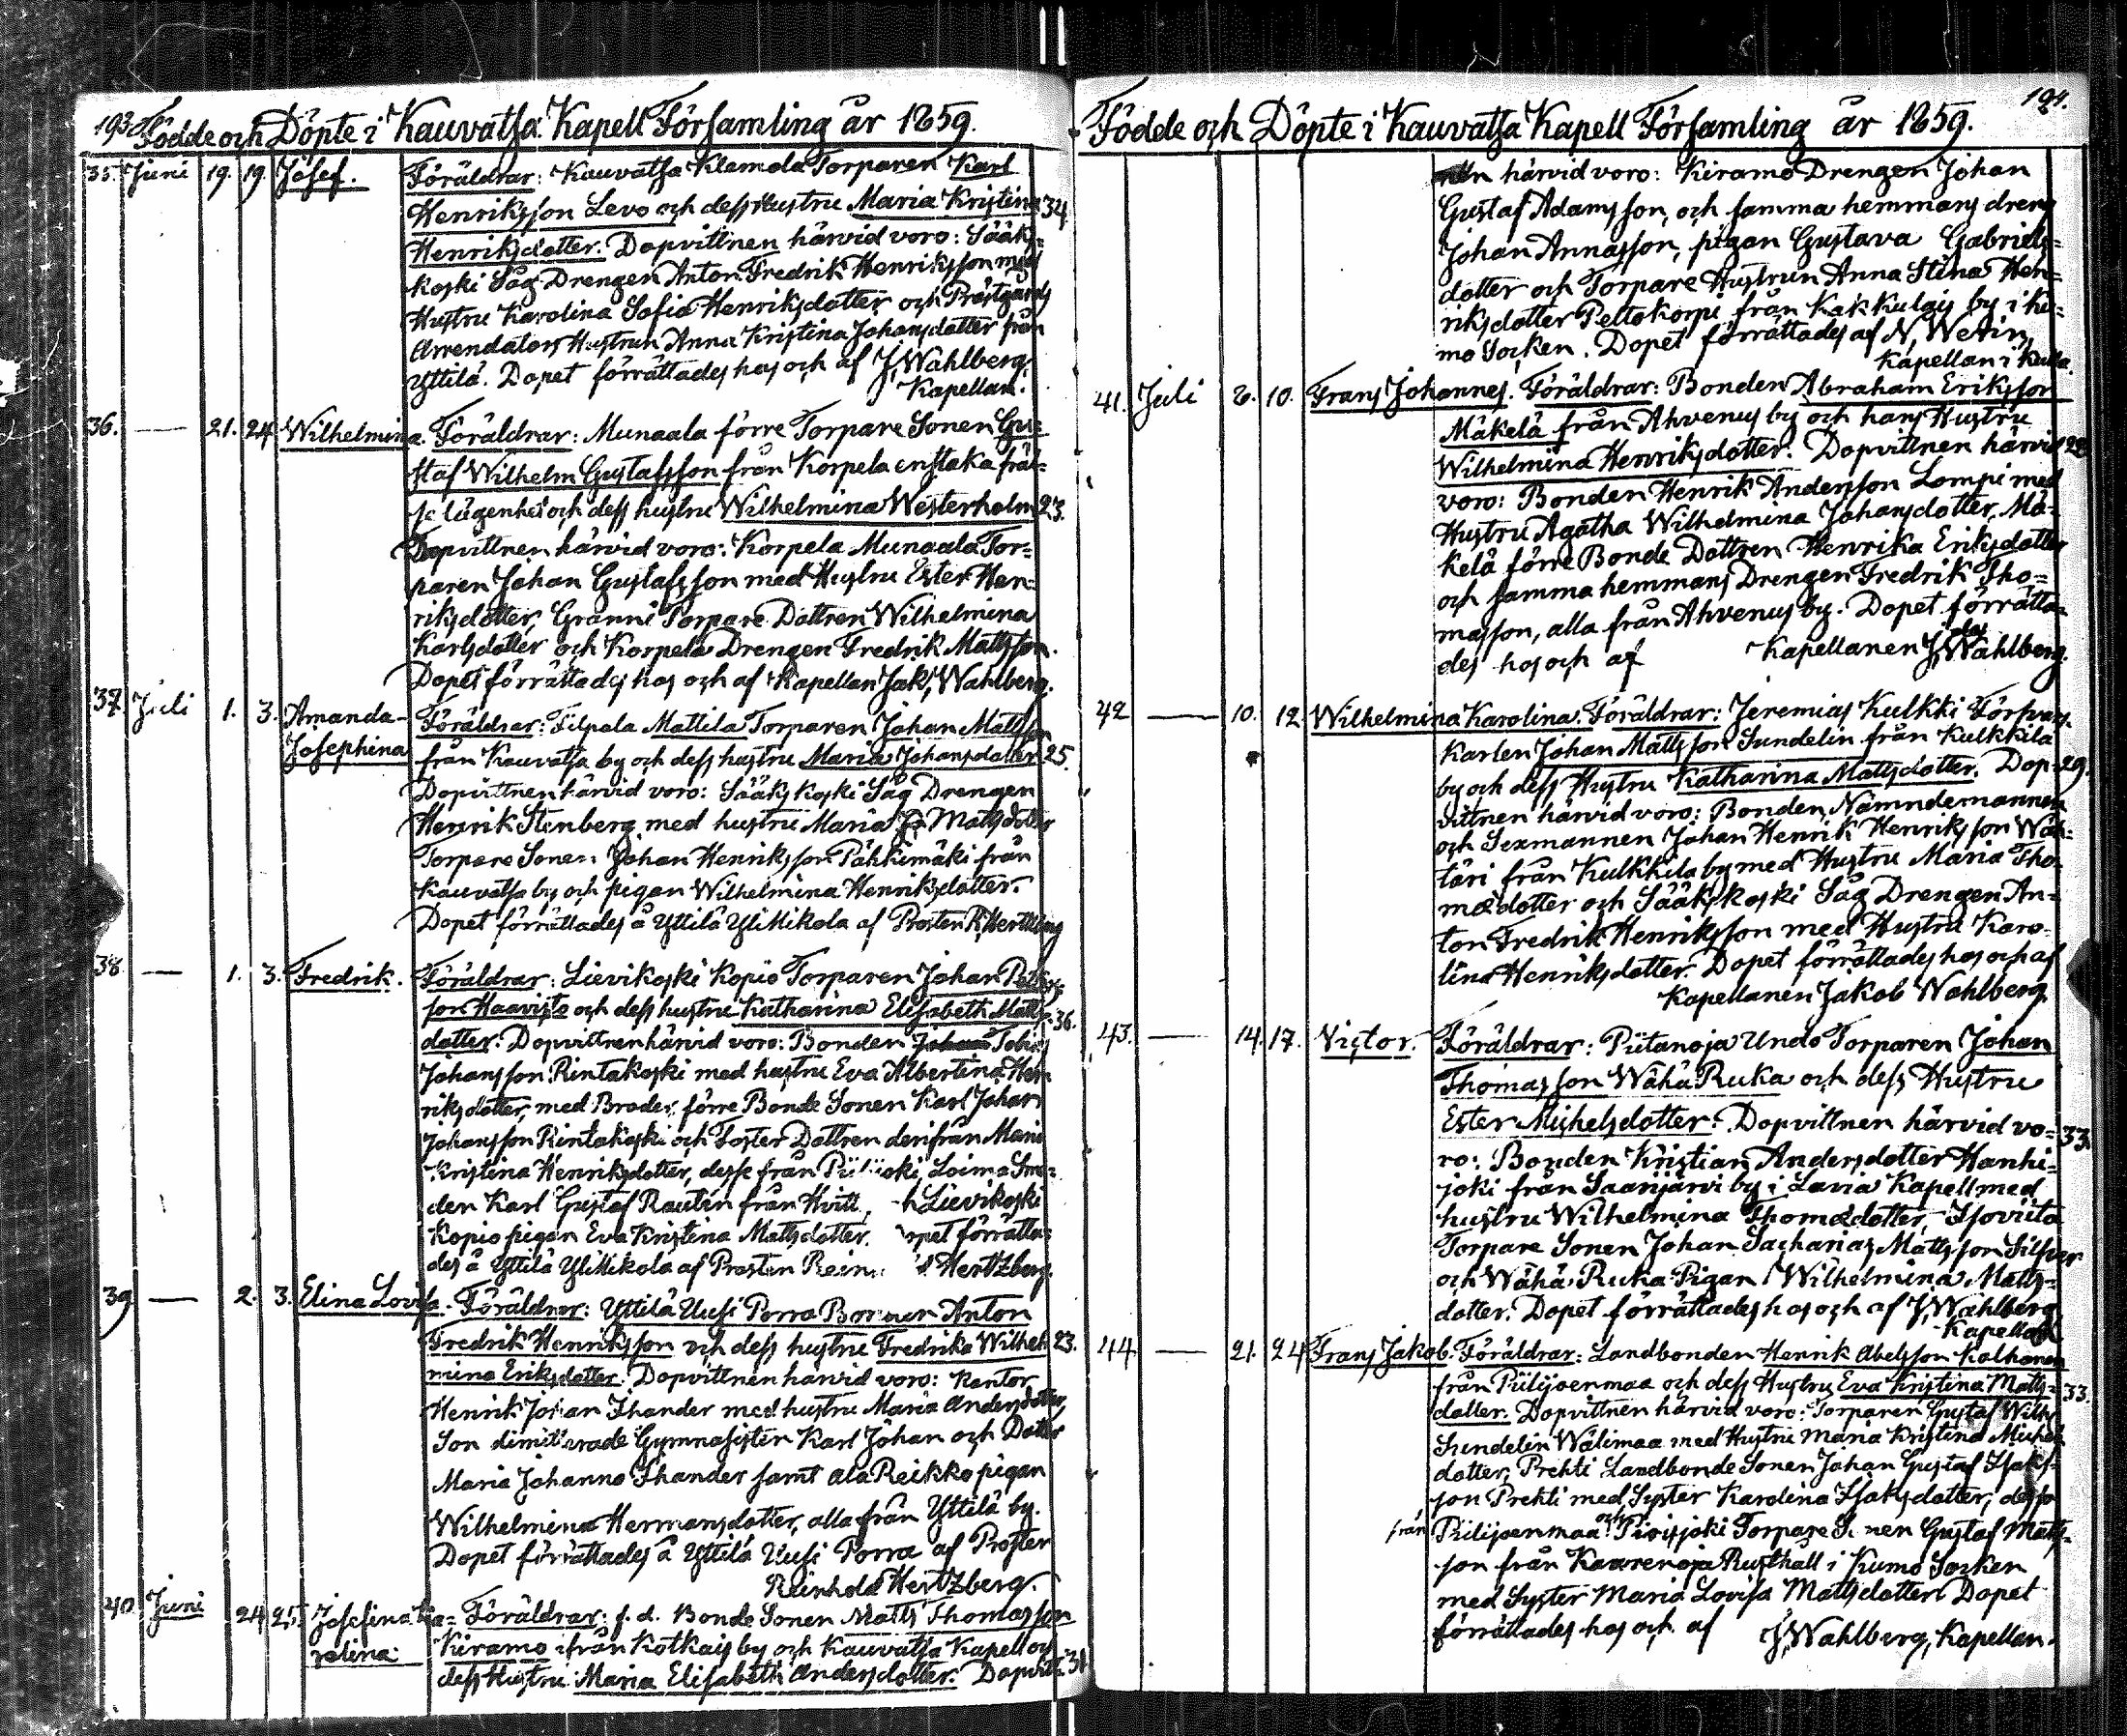 193. Födde och Döpte i Kauvatsa Kapell Församling år 1859.
35. Juni 19. 19. Josef. Föräldrar: Kauvatsa Klemola Torparen Karl
Henriksson Levo och dess Hustru Maria Kristina 34
Henriksdotter. Dopvittnen härvid voro: Sääks=
koski Såg Drengen Anton Fredrik Henriksson med
Hustru Karolina Sofia Henriksdotter och Prästgårds
Arrendators Hustrun Anna Kristina Johansdotter från
Yttilä. Dopet förrättades hos och af J. Wahlberg,
Kapellan.
36. — 21. 24 Wilhelmina. Föräldrar: Munaala förre Torpare Sonen Gu=
staf Wilhelm Gustafsson från Korpela enstaka fräl=
se lägenhet och dess hustru Wilhelmina Westerholm 23.
Dopvittnen härvid voro: Korpela Munaala Tor=
paren Johan Gustafsson med Hustru Ester Hen=
riksdotter, Granni Torpare Dottren Wilhelmina
Karlsdotter och Korpela Drengen Fredrik Mattsson.
Dopet förrättades hos och af Kapellan Jak. Wahlberg.
37. Juli 1. 3. Amanda Föräldrar: Filpola Mattila Torparen Johan Mattsson
Josephina från Kauvatsa by och dess hustru Maria Johansdotter 25.
Dopvittnen härvid voro: Sääkskoski Såg Drengen
Henrik Stenberg med hustru Maria Mattsdotter
Torpare Sonen Johan Henriksson Pähkimäki från
Kauvatsa by och pigan Wilhelmina Henriksdotter.
Dopet förrättades å Yttilä Yli Mikola af Prosten R. Hertzberg
38. — 1. 3. Fredrik. Föräldrar: Lievikoski Kopio Torparen Johan Petters=
son Haavisto och dess hustru Katharina Elisabeth Matts= 36.
dotter. Dopvittnen härvid voro: Bonden Tobias
Johansson Rintakoski med hustru Eva Albertina Hen
riksdotter, med Broder, förre Bonde Sonen Karl Johan
Johansson Rintakoski och Foster Dottren derifrån Maria
Kristina Henriksdotter, desse från Loima Sme=
den Karl Gustaf Rautin från Lievikoski
Kopio pigan Eva Kristina Mattsdotter. förrätta=
des å Yttilä Yli Mikola af Prosten Hertzberg.
39 — 2. 3. Elina Lovisa. Föräldrar: Yttilä Uusi Porra Bonden Anton
Fredrik Henriksson och dess hustru Fredrika Wilhel 23.
mina Eriksdotter. Dopvittnen härvid voro: Kantor
Henrik Johan Ihander med hustru Maria Andersdotter,
Son dimitterade Gymnasisten Karl Johan och Dotter
Maria Johanna Ihander samt Ala Reikko pigan
Wilhelmina Hermansdotter, alla från Yttilä by.
Dopet förrättades å Yttilä Uusi Porra af Prosten
Reinhold Hertzberg.
40 Juni 24 25. Josefina Ka= Föräldrar: f. d. Bonde Sonen Matts Thomasson
rolina. Kiramo ifrån Kotkais by och Kauvatsa Kapell och
dess Hustru Maria Elisabeth Andersdotter. Dopvitt= 31
194.
Födde och Döpte i Kauvatsa Kapell Församling år 1859.
nen härvid voro: Kiramo Drengen Johan
Gustaf Adamsson, och samma hemmans dreng
Johan Annasson, pigan Gustava Gabriels=
dotter och Torpare Hustrun Anna Stina Hen=
riksdotter Peltokorpi från Kakkulais by i Ku=
mo Socken. Dopet förrättades af N. Wetin,
Kapellan i Kulla.
41. Juli 6. 10. Frans Johannes. Föräldrar: Bonden Abraham Eriksson
Mäkelä från Ahvenus by och hans Hustru
Wilhelmina Henriksdotter. Dopvittnen härvid 22
voro: Bonden Henrik Andersson Lompi med
Hustru Agatha Wilhelmina Johansdotter, Mä=
kelä förre Bonde Dottren Henrika Eriksdotter
och samma hemmans Drengen Fredrik Tho=
masson, alla från Ahvenus by. Dopet förrätta=
des hos och af Kapellanen J. Wahlberg.
42 — 10. 12 Wilhelmina Karolina. Föräldrar: Jeremias Kulkki Försvars
Karlen Johan Mattsson Sundelin från Kulkkila
by och dess Hustru Katharina Mattsdotter. Dop= 29.
vittnen härvid voro: Bonden, Nämndemannen
och Sexmannen Johan Henrik Henriksson Wäh=
täri från Kulkkila by med Hustru Maria Tho=
mædotter och Sääkskoski Såg Drengen An=
ton Fredrik Henriksson med Hustru Karo=
lina Henriksdotter. Dopet förrättades hos och af
Kapellanen Jakob Wahlberg.
43. — 14. 17. Victor. Föräldrar: Piitanoja Undo Torparen Johan
Thomasson Wähä Ruka och dess Hustru
Ester Michelsdotter. Dopvittnen härvid vo= 33
ro: Bonden Kristian Andersdotter Hanhi=
joki från Saarijärvi by i Lavia Kapell med
hustru Wilhelmina Thomædotter, Isoviita
Torpare Sonen Johan Sacharias Mattsson Silfver
och Wähä Ruka Pigan Wilhelmina Matts=
dotter. Dopet förrättades hos och af J. Wahlberg
Kapellan
44 — 21. 24 Frans Jakob. Föräldrar: Landbonden Henrik Abelsson Kalhanen
från Piilijoenmaa och dess Hustru Eva Kristina Matts= 33.
dotter. Dopvittnen härvid voro: Torparen Gustaf Wilh.
Sundelin Wälimaa med Hustru Maria Kristina Michels
dotter, Prehti Landbonde Sonen Johan Gustaf Isaks=
son Prehti med Syster Karolina Isaksdotter, desse
från Piilijoenmaa och Piosjoki Torpare Sonen Gustaf Matts=
son från Kaurenoja Rusthåll i Kumo Socken
med Syster Maria Lovisa Mattsdotter. Dopet
förrättades hos och af J. Wahlberg, Kapellan.